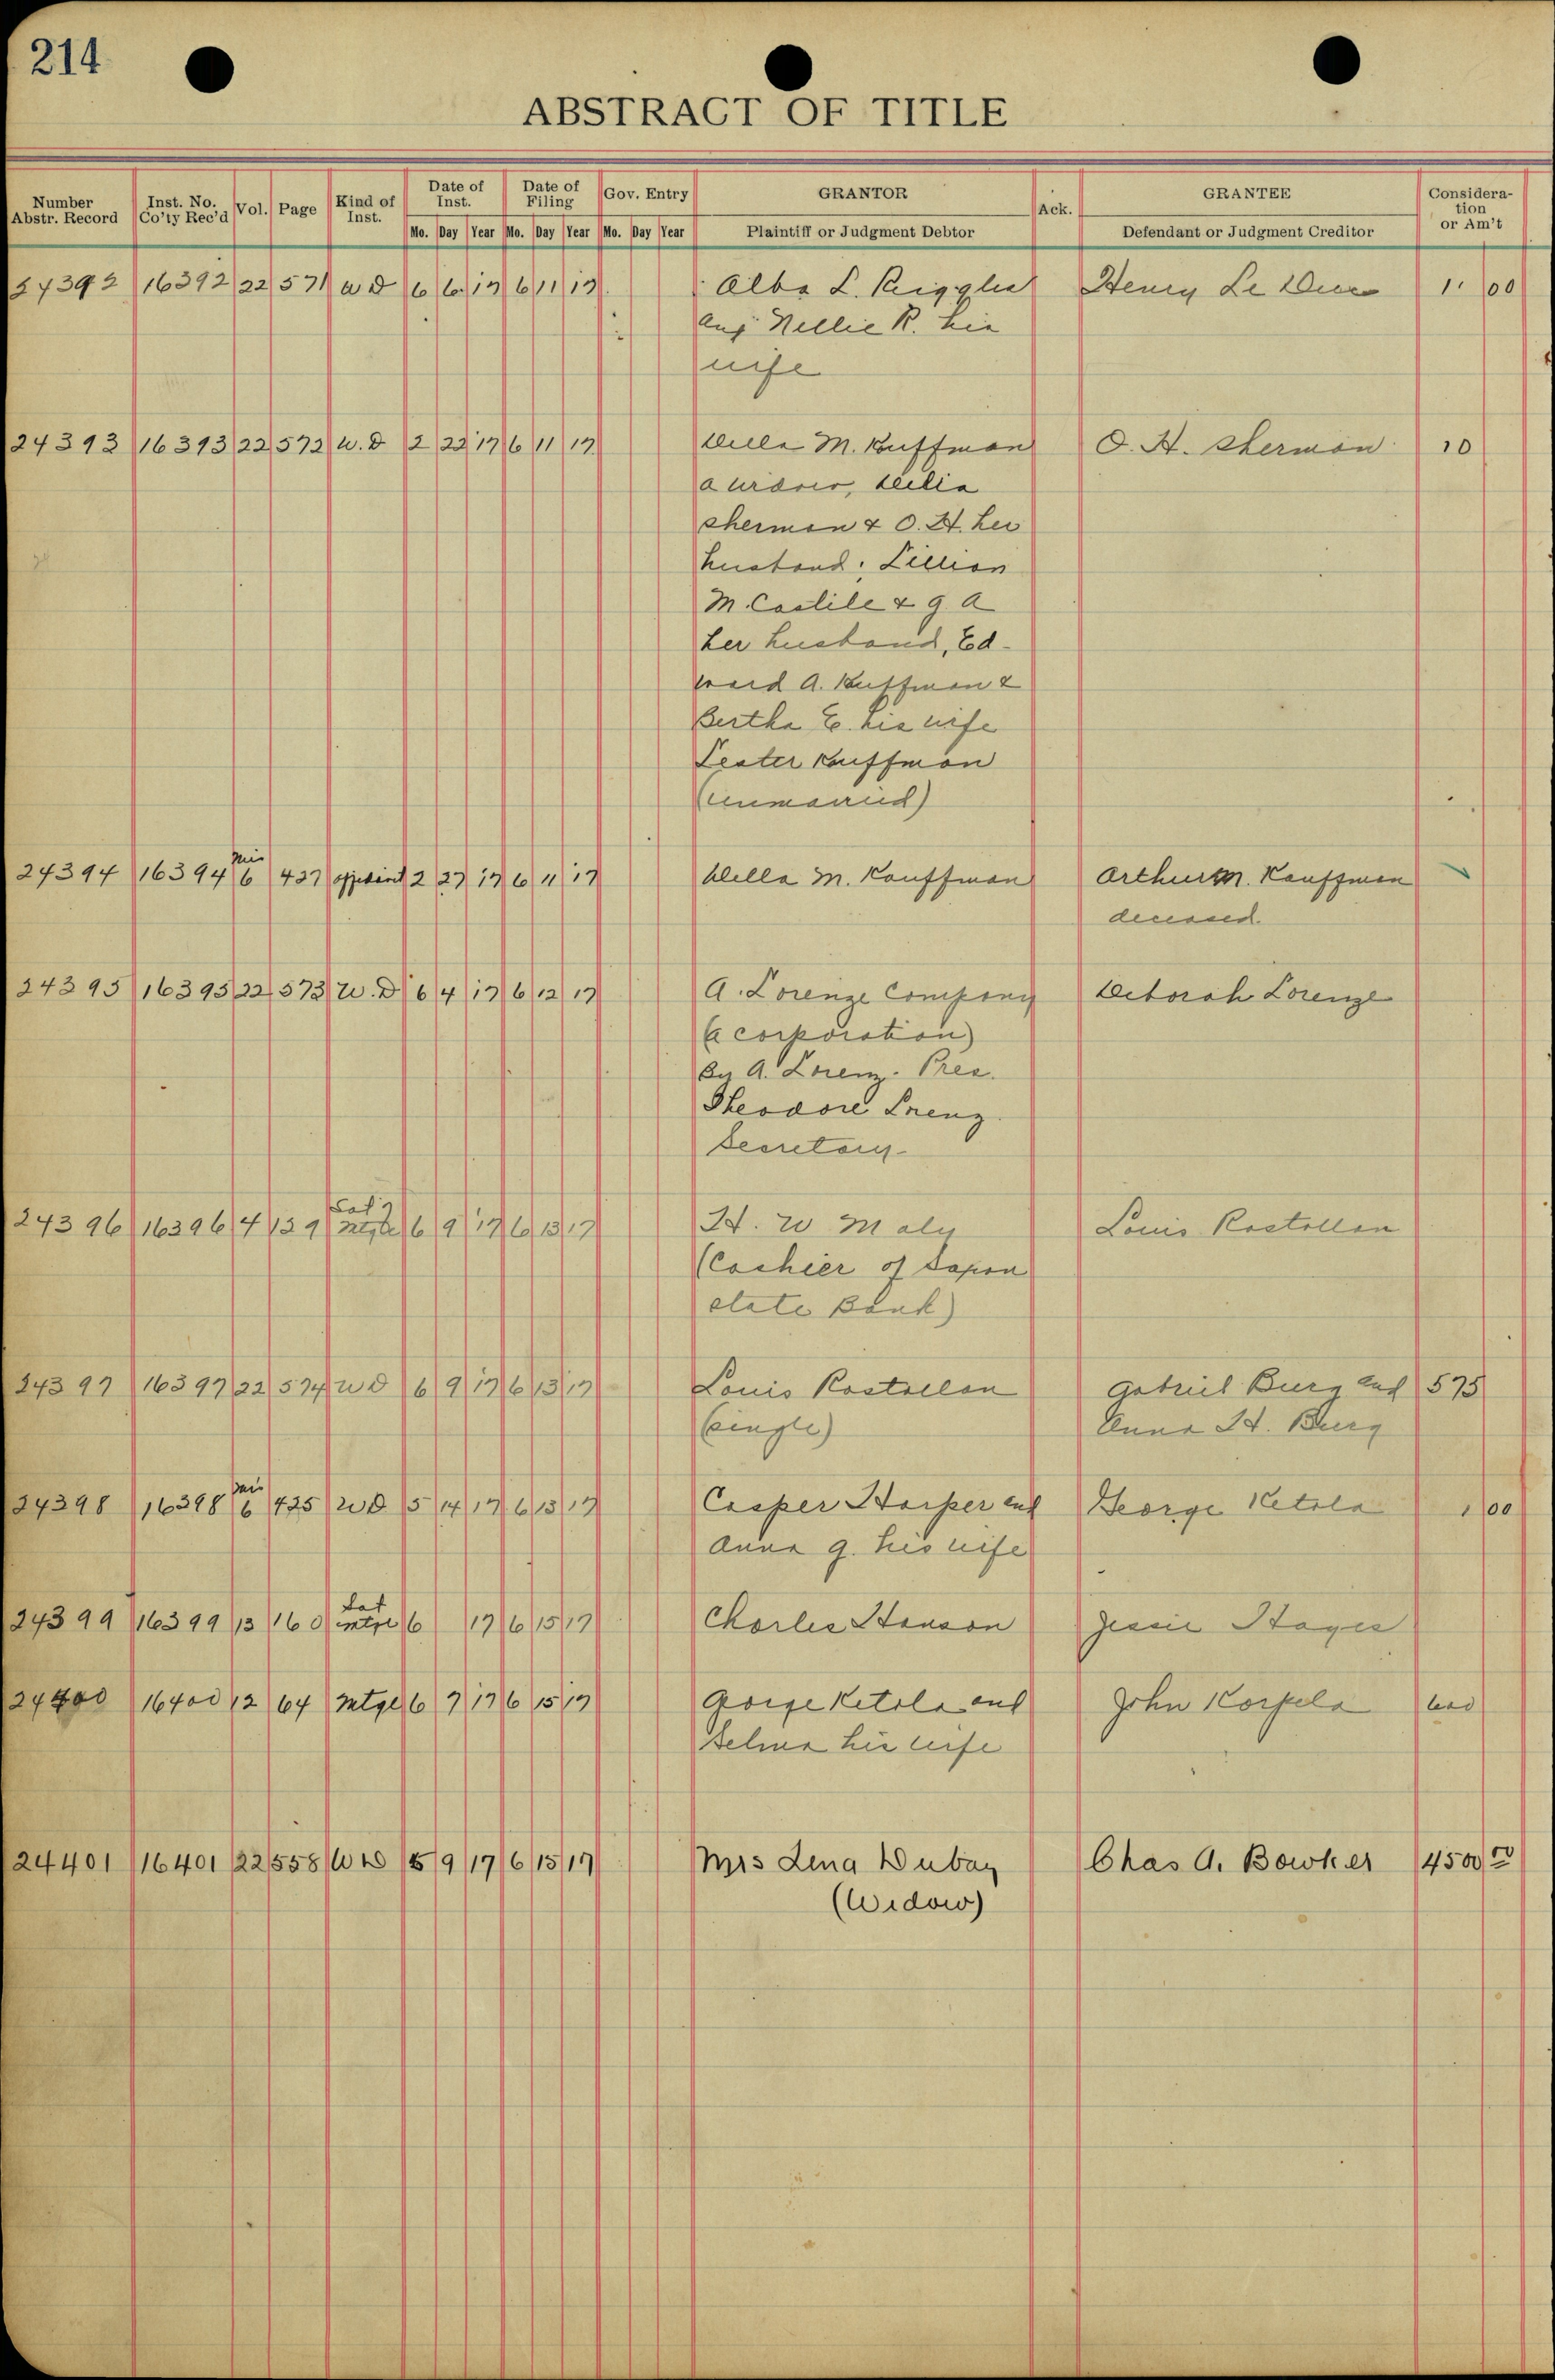 214
ABSTRACT OF TITLE
Number Abstr. Record | Inst. No. Co'ty Rec'd | Vol. | Page | Kind of Inst. | Date of Inst. | Date of Filing | Gov. Entry | GRANTOR | Ack. | GRANTEE | Consideration or Am't
Mo. Day Year Mo. Day Year Mo. Day Year Plaintiff or Judgment Debtor Defendant or Judgment Creditor
24392 16392 22 571 W D 6 6 17 6 11 17 Alba L. Henry Le 1. 00
and Nellie R. his
wife
24393 16393 22 572 W. D 2 22 17 6 11 17 M. Kuffman O. H. Sherman 10
a widow,
Sherman & O. H. her
husband; Lillian
M. Castile & G. A
her husband, Ed-
ward A. Kuffman &
Bertha E. his wife
Lester Kauffman
(unmarried)
24394 16394 Mis 6 427 2 27 17 6 11 17 M. Kauffman Arthur M. Kauffman
deceased.
24395 16395 22 573 W. D 6 4 17 6 12 17 A. Lorenze Company Deborah Lorenze
(a corporation)
By A. Lorenz. Pres.
Theodore Lorenz.
Secretary
24396 16396 4 139 Sat Mtge 6 9 17 6 13 17 H. W Maly Louis Rostollan
(Cashier of Sapon
state Bank)
24397 16397 22 574 W D 6 9 17 6 13 17 Louis Rostollan Gabriel Burg and 575
(single) Anna H. Burg
24398 16398 Mis 6 425 W D 5 14 17 6 13 17 Casper Harper and George Ketola 1 00
Anna G. his wife
24399 16399 13 160 Sat mtge 6 17 6 15 17 Charles Hanson Jessie Hayes
24400 16400 12 64 Mtge 6 7 17 6 15 17 George Ketola and John Korpela 600
Selma his wife
24401 16401 22 558 W D 5 9 17 6 15 17 Mrs Lena Dubay Chas A. Bowker 4500 00
(Widow)